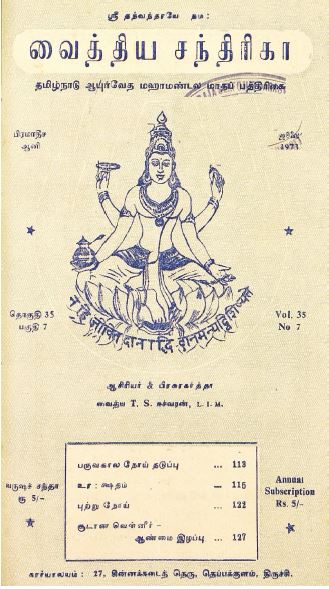 ஸ்ரீ தந்வந்தரயே நம:
வைத்திய சந்திரிகா
தமிழ்நாடு ஆயுர்வேத மஹாமண்டல மாதப் பத்திரிகை
பிரமாதீச
ஆனி
ஜூலை
1973
தொகுதி 35
பகுதி 7
Vol. 35
No 7
ஆசிரியர் & பிரசுரகர்த்தா
வைத்ய T. S. ஈச்வரன், L. I. M.
வருஷச் சந்தா
ரூ 5/-
பருவகால நோய் தடுப்பு ... 113
உர : க்ஷதம் ... 115
புற்று நோய் ... 122
சூடான வெள்ளீர் –
ஆண்மை இழப்பு ... 127
Annual
Subscription
Rs. 5/-
கார்யாலயம் : 27, சின்னக்கடைத் தெரு, தெப்பக்குளம், திருச்சி.